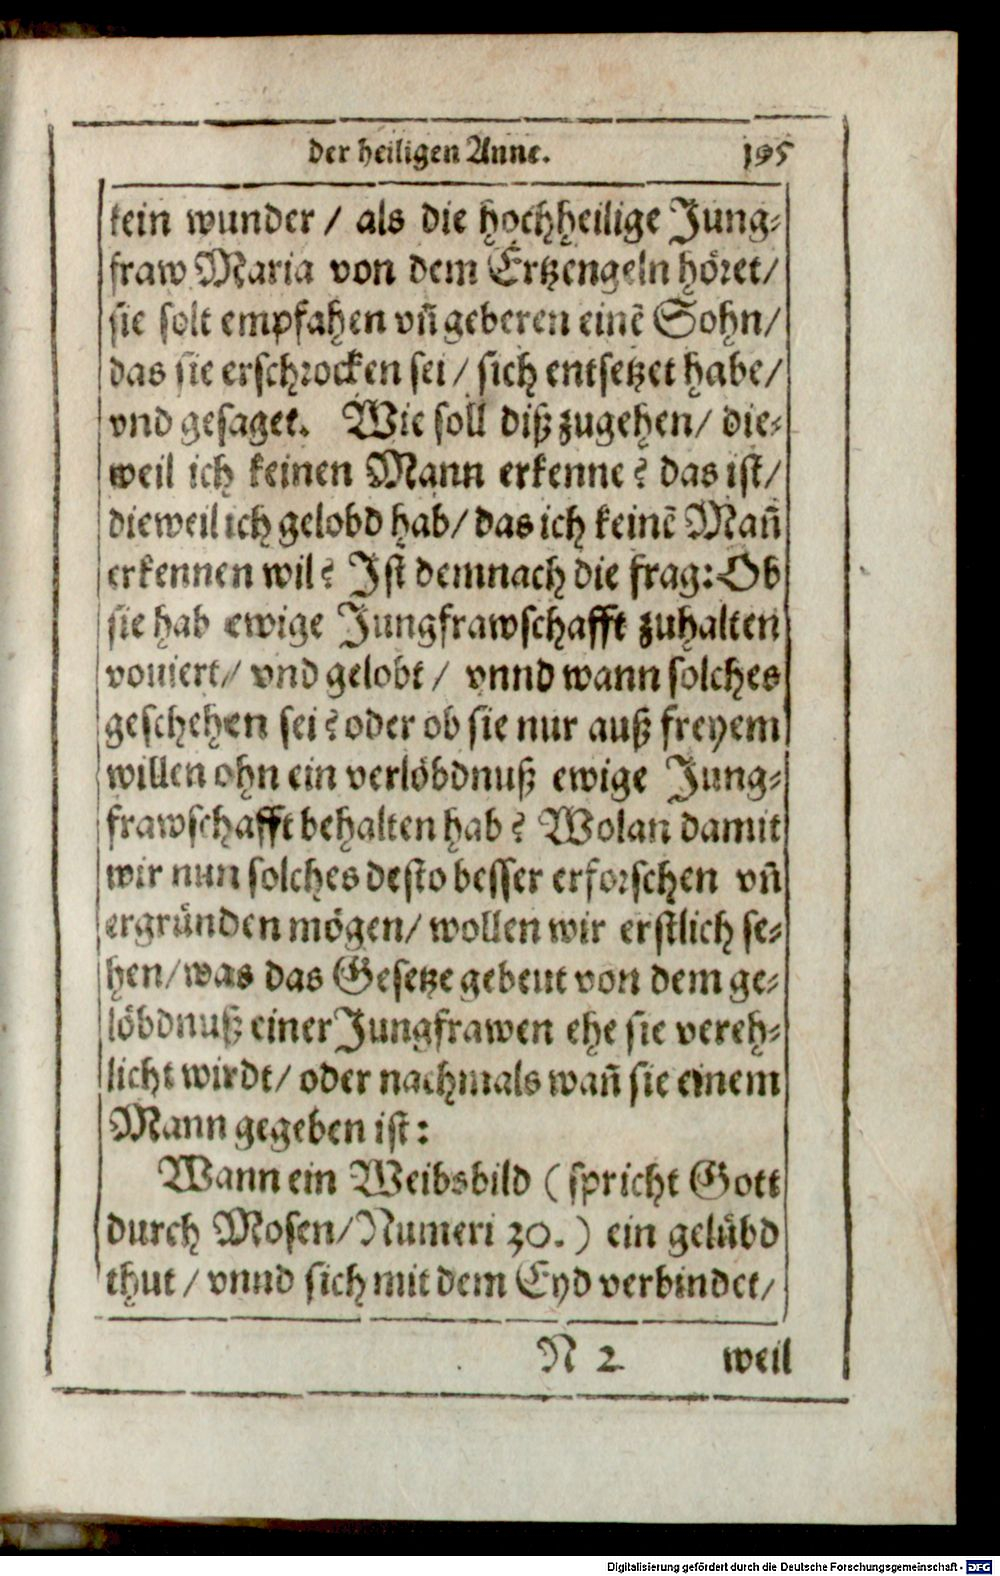 der heiligen Anne. 195
kein wunder / als die hochheilige Jung⸗
fraw Maria von dem Ertzengeln höret/
sie solt empfahen vñ geberen einẽ Sohn/
das sie erschrocken sei / sich entsetzet habe/
vnd gesaget. Wie soll diß zugehen/ die⸗
weil ich keinen Mann erkenne? das ist/
dieweil ich gelobd hab/ das ich keinẽ Mañ
erkennen wil? Ist demnach die frag: Ob
sie hab ewige Jungfrawschafft zuhalten
vouiert/ vnd gelobt / vnnd wann solches
geschehen sei? oder ob sie nur auß freyem
willen ohn ein verlöbdnuß ewige Jung⸗
frawschafft behalten hab? Wolan damit
wir nun solches desto besser erforschen vñ
ergründen mögen/ wollen wir erstlich se⸗
hen/ was das Gesetze gebeut von dem ge⸗
löbdnuß einer Jungfrawen ehe sie vereh⸗
licht wirdt/ oder nachmals wañ sie einem
Mann gegeben ist:
Wann ein Weibsbild ( spricht Gott
durch Mosen/ Numeri 30. ) ein gelübd
thut / vnnd sich mit dem Eyd verbindet/
N 2 weil
Digitalisierung gefördert durch die Deutsche Forschungsgemeinschaft - DFG